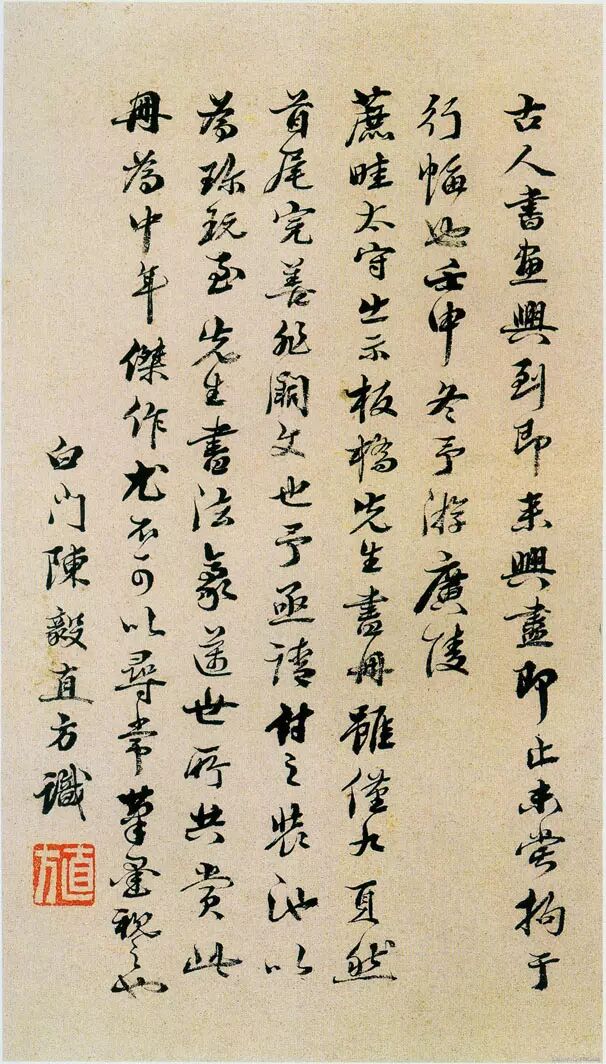 古人書畫興到即來興盡即止未嘗拘于
行幅也壬申冬予游廣陵
蔗畦太守出示板橋先生畫冊雖僅九頁然
首尾完善非闕文也予亟請付之裝池以
為珍玩至先生書法篆籀世所共賞此
冊為中年傑作尤不可以尋常筆墨視之也
白門陳毅直方識
直方